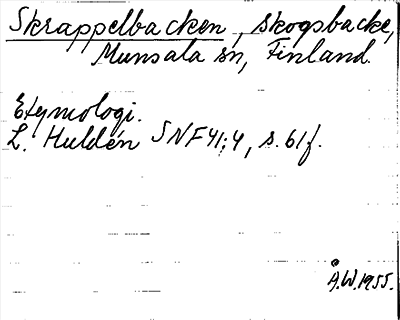 Skrappelbacken, skogsbacke,
Munsala sn, Finland.
Etymologi.
L. Huldén SNF 41:4, s. 61f.
Å.W. 1955.